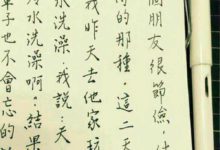 個朋友很節儉，
的那種，這二天
我昨天去他家玩
水洗澡，我說：天
冷水洗澡啊。結果
輩子也不會忘的